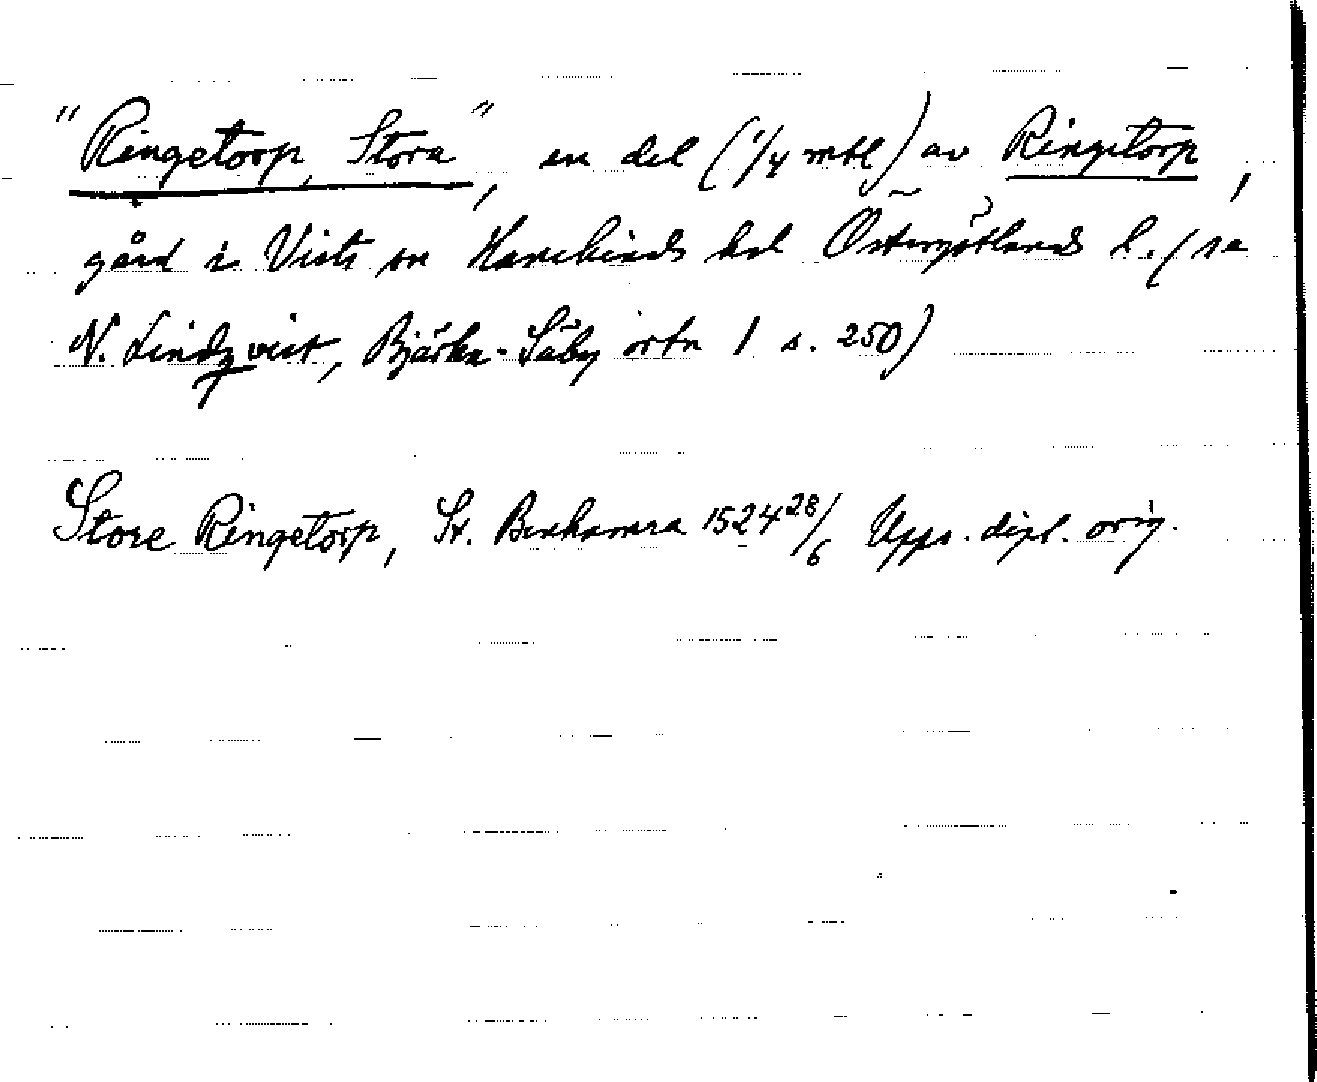 "Ringetorp, Stora", en del (1/4 mtl) av Ringetorp,
gård i Vists sn Hanekinds hd Östergötlands l. (se
N. Lindqvist, Bjärka-Säby ortn 1 s. 250)
Store Ringetorp, St. Benhamra 1524 28/6 Upps. dipl. orig.